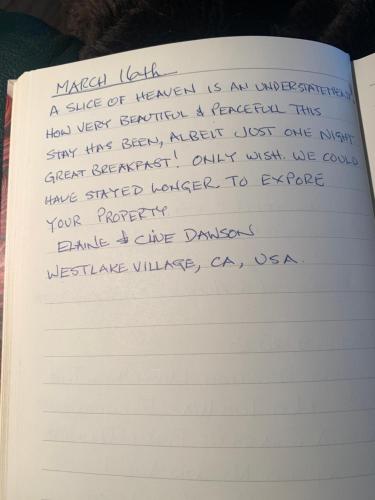 MARCH 16th
A SLICE OF HEAVEN IS AN UNDERSTATEMENT!
HOW VERY BEAUTIFUL & PEACEFULL THIS
STAY HAS BEEN, ALBEIT JUST ONE NIGHT
GREAT BREAKFAST! ONLY WISH WE COULD
HAVE STAYED LONGER TO EXPORE
YOUR PROPERTY
ELAINE & CLIVE DAWSON
WESTLAKE VILLAGE, CA, USA.